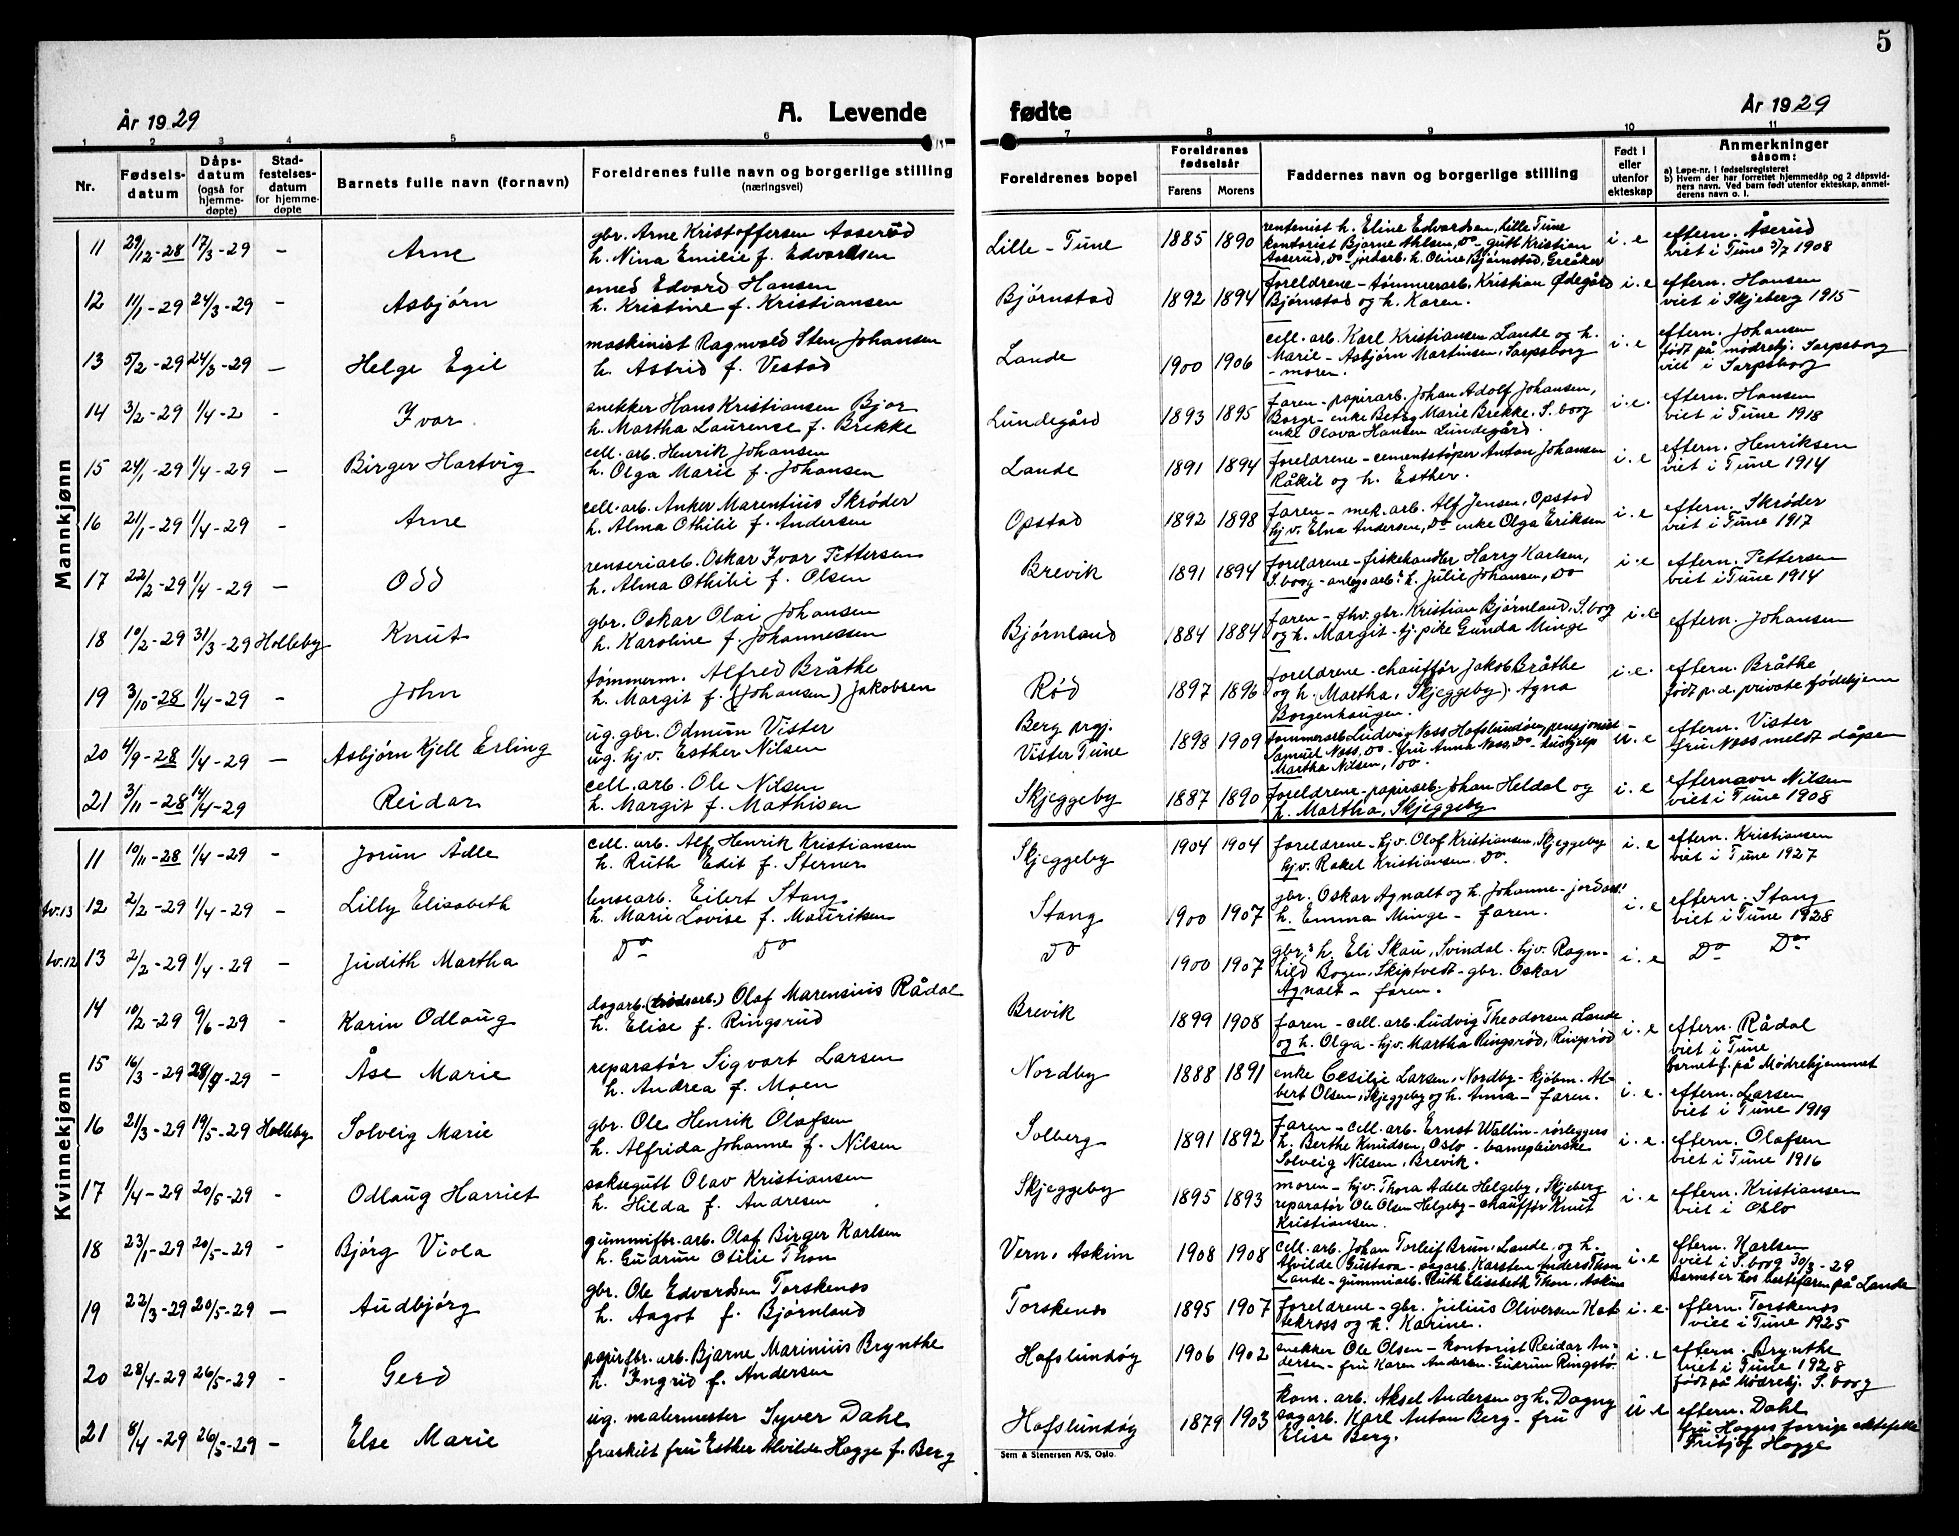 5
År 1929
A. Levende fødte
År 1929
1 2 3 4 5 6 7 8 9 10 11
Nr.
Fødsels-
datum
Dåps-
datum
(også for
hjemme-
døpte)
Stad-
festelses-
datum
for hjemme-
døpte
Barnets fulle navn (fornavn)
Foreldrenes fulle navn og borgerlige stilling
(næringsvei)
Foreldrenes bopel
Foreldrenes
fødselsår
Farens Morens
Faddernes navn og borgerlige stilling
Født i
eller
utenfor
ekteskap
Anmerkninger
såsom:
a) Løpe-nr. i fødselsregisteret
b) Hvem der har forrettet hjemmedåp og 2 dåpsvid-
ners navn. Ved barn født utenfor ekteskap, anmel-
derens navn o. l.
Mannkjønn
11 29/12-28 17/3-29 - Arne
gbr. Arne Kristoffersen Aaserød
h. Nina Emilie f. Edvardsen
Lille-Tune 1885 1890
rentenist h. Eline Edvardsen, Lille Tune
kontorist Bjarne Ahlsen, do - gutt Kristian
Asserud, do - jordarb. h. Oline Bjørnstad, Greåker
i. e
eftern. Åserud
viet i Tune 5/7 1908
12 11/1-29 24/3-29 - Asbjørn
smed Edvard Hansen
h. Kristine f. Kristiansen
Bjørnstad 1892 1894
foreldrene - tømmerarb. Kristian Ødegård
Bjørnstad og h. Karen.
i. e
eftern. Hansen
viet i Skjeberg 1915
13 5/2-29 24/3-29 - Helge Egil
maskinist Ragnvald Sten Johansen
h. Astrid f. Vestad
Lande 1900 1906
cell. arb. Karl Kristiansen Lande og h.
Marie - Asbjørn Martinsen, Sarpsborg
- moren.
i. e
eftern. Johansen
født på mødrehj. Sarpsborg
viet i Sarpsborg
14 3/2-29 1/4-2 - Ivar
snekker Hans Kristiansen Bjor
h. Martha Laurense f. Brekke
Lundegård 1893 1895
faren - papirarb. Johan Adolf Johansen,
Borge - enke Betsy Marie Brekke. S. borg
enke Olava Hansen Lundegård.
i. e.
eftern. Hansen
viet i Tune 1918
15 24/1-29 1/4-29 - Birger Hartvig
cell. arb. Henrik Johansen
h. Olga Marie f. Johansen
Lande 1891 1894
foreldrene - cementstøper Anton Johansen
Råkil og h. Esther.
i. e
eftern. Henriksen
viet i Tune 1914
16 21/1-29 1/4-29 - Arne
cell. arb. Anker Marentius Skrøder
h. Alma Othilie f. Andersen
Opstad 1892 1898
faren - mek. arb. Alf Jensen, Opstad
hj. v. Elna Andersen, do enke Olga Eriksen
i. e
eftern. Skrøder
viet i Tune 1917
17 22/2-29 1/4-29 - Odd
renseriarb. Oskar Ivar Pettersen
h. Alma Othilie f. Olsen
Brevik 1891 1894
foreldrene - fiskehandler Harry Karlsen,
S. borg - anlegsarb.s h. Julie Johansen, do
i. e
eftern. Pettersen
viet i Tune 1914
18 10/2-29 31/3-29 Holleby Knut
gbr. Oskar Olai Johansen
h. Karoline f. Johannessen
Bjørnland 1884 1884
faren - fhv. gbr. Kristian Bjørnland, S. borg
og h. Margit - tj. pike Gunda Minge
i. e
eftern. Johansen
19 3/10-28 1/4-29 - John
tømmerm. Alfred Bråthe
h. Margit f. (Johansen) Jakobsen
Rød 1897 1896
foreldrene - chauffør Jakob Bråthe
og h. Martha, Skjeggeby). Agna
Borgenhaugen.
i. e.
eftern. Bråthe
født p. d. private fødehjem
20 4/9-28 1/4-29 - Asbjørn Kjell Erling
ug. gbr. Odmun Vister
ug. hj. v. Esther Nilsen
Berg prgj.
Vister Tune 1898 1909
tømmerarb Ludvig Næss Hafslundsøen, pensjonist
Samuel Næss, do - fru Anna Næss, do - hushjelp
Martha Nilsen, do.
u. e
eftern. Vister
fru Næss meldt dåpen
21 3/11-28 14/4-29 Reidar
cell. arb. Ole Nilsen
h. Margit f. Mathisen
Skjeggeby 1887 1890
foreldrene - papirarb. Johan Heldal og
h. Martha, Skjeggeby
i. e
efternavn Nilsen
viet i Tune 1908
Kvinnekjønn
11 10/11-28 1/4-29 - Jorun Adle
cell. arb. Alf Henrik Kristiansen
h. Ruth Edit f. Sterner
Skjeggeby 1904 1904
foreldrene - hj. v. Olaf Kristiansen, Skjeggeby
hj. v. Rakel Kristiansen. do.
i. e
eftern. Kristiansen
viet i Tune 1927
tv.13 12 2/2-29 1/4-29 - Lilly Elisabeth
lensearb. Eilert Stang
h. Marie Lovise f. Mauritsen
Stang 1900 1907
gbr. Oskar Agnalt og h. Johanne - jordarb.s
h. Emma Minge - faren.
i. e
eftern. Stang
viet i Tune 1928
tv.12 13 2/2-29 1/4-29 - Judith Martha
Do do
do 1900 1907
gbr.s h. Eli Skau, Svindal - hj. v. Ragn-
hild Bogen, Skiptvedt - gbr. Oskar
Agnalt - faren.
i. e
Do Do
14 10/2-29 9/6-29 - Karin Odlaug
dagarb. Olaf Marensius Rådal
h. Elise f. Ringsrud
Brevik 1899 1908
faren - cell. arb. Ludvig Theodorsen Lande
og h. Olga - hj. v. Martha Ringsrød, Ringsrød
i. e
eftern. Rådal
viet i Tune
barnet f. på Mødrehjemmet
15 16/3-29 28/4-29 - Åse Marie
reparatør Sigvart Larsen
h. Andrea f. Moen
Nordby 1888 1891
enke Cecilje Larsen, Nordby - kjøbm. Al-
bert Olsen, Skjeggeby og h. Anna - faren.
i. e.
eftern. Larsen
viet i Tune 1919
16 21/3-29 19/5-29 Holleby Solveig Marie
gbr. Ole Henrik Olafsen
h. Alfrida Johanne f. Nilsen
Solberg 1891 1892
faren - cell. arb. Ernst Wallin - rørleggers
h. Berthe Knudsen, Oslo - barnepleierske
Solveig Nilsen, Brevik.
i. e.
eftern. Olafsen
viet i Tune 1916
17 1/4-29 20/5-29 - Odlaug Harriet
saksegutt Olav Kristiansen
h. Hilda f. Andresen
Skjeggeby 1895 1893
moren - hj. v. Thora Adele Helgeby, Skjeberg
reparatør Ole Olsen Helgeby - chauffør Knut
Kristiansen.
i. e
eftern. Kristiansen
viet i Oslo
18 23/1-29 20/5-29 - Bjørg Viola
gummifbr. arb. Olaf Birger Karlsen
h. Gudrun Otilie Thon
Vern, Askim 1908 1908
cell. arb. Johan Torleif Brun, Lande og h.
Alvilde Gustava - sagarb. Karsten Anders Thon
Lande - gummiarb. Ruth Elisabeth Thon, Askim
i. e
eftern. Karlsen
viet i S. borg 30/3-29
Barnet er hos bestefaren på Lande
19 22/3-29 20/5-29 - Audbjørg
gbr. Ole Edvardsen Torskenæs
h. Aagot f. Bjørnland
Torskenæs 1895 1907
foreldrene - gbr. Julius Oliversen Kat-
tekross og h. Karine.
i. e.
eftern. Torskenæs
viet i Tune 1925
20 28/4-29 26/5-29 - Gerd
papirfbr. arb. Bjarne Marinius Brynthe
h. Ingrid f. Andersen
Hafslundsøy 1906 1902
snekker Ole Olsen - kontorist Reidar An-
dersen - fru Karen Andersen - Gudrun Ringstø.
i. e
eftern. Brynthe
viet i Tune 1928
født på Mødrehj. S. borg
21 8/4-29 26/5-29 - Else Marie
ug. malermester Syver Dahl
fraskilt fru Esther Alvilde Hogge f. Berg
Hafslundsøy 1879 1903
kom. arb. Aksel Andersen og h. Dagny
sagarb. Karl Anton Berg - fru
Elise Berg.
u. e
eftern. Dahl
fru Hogges forrige ektefelle
Fritjof Hogge
Sem & Stenersen A/S, Oslo.